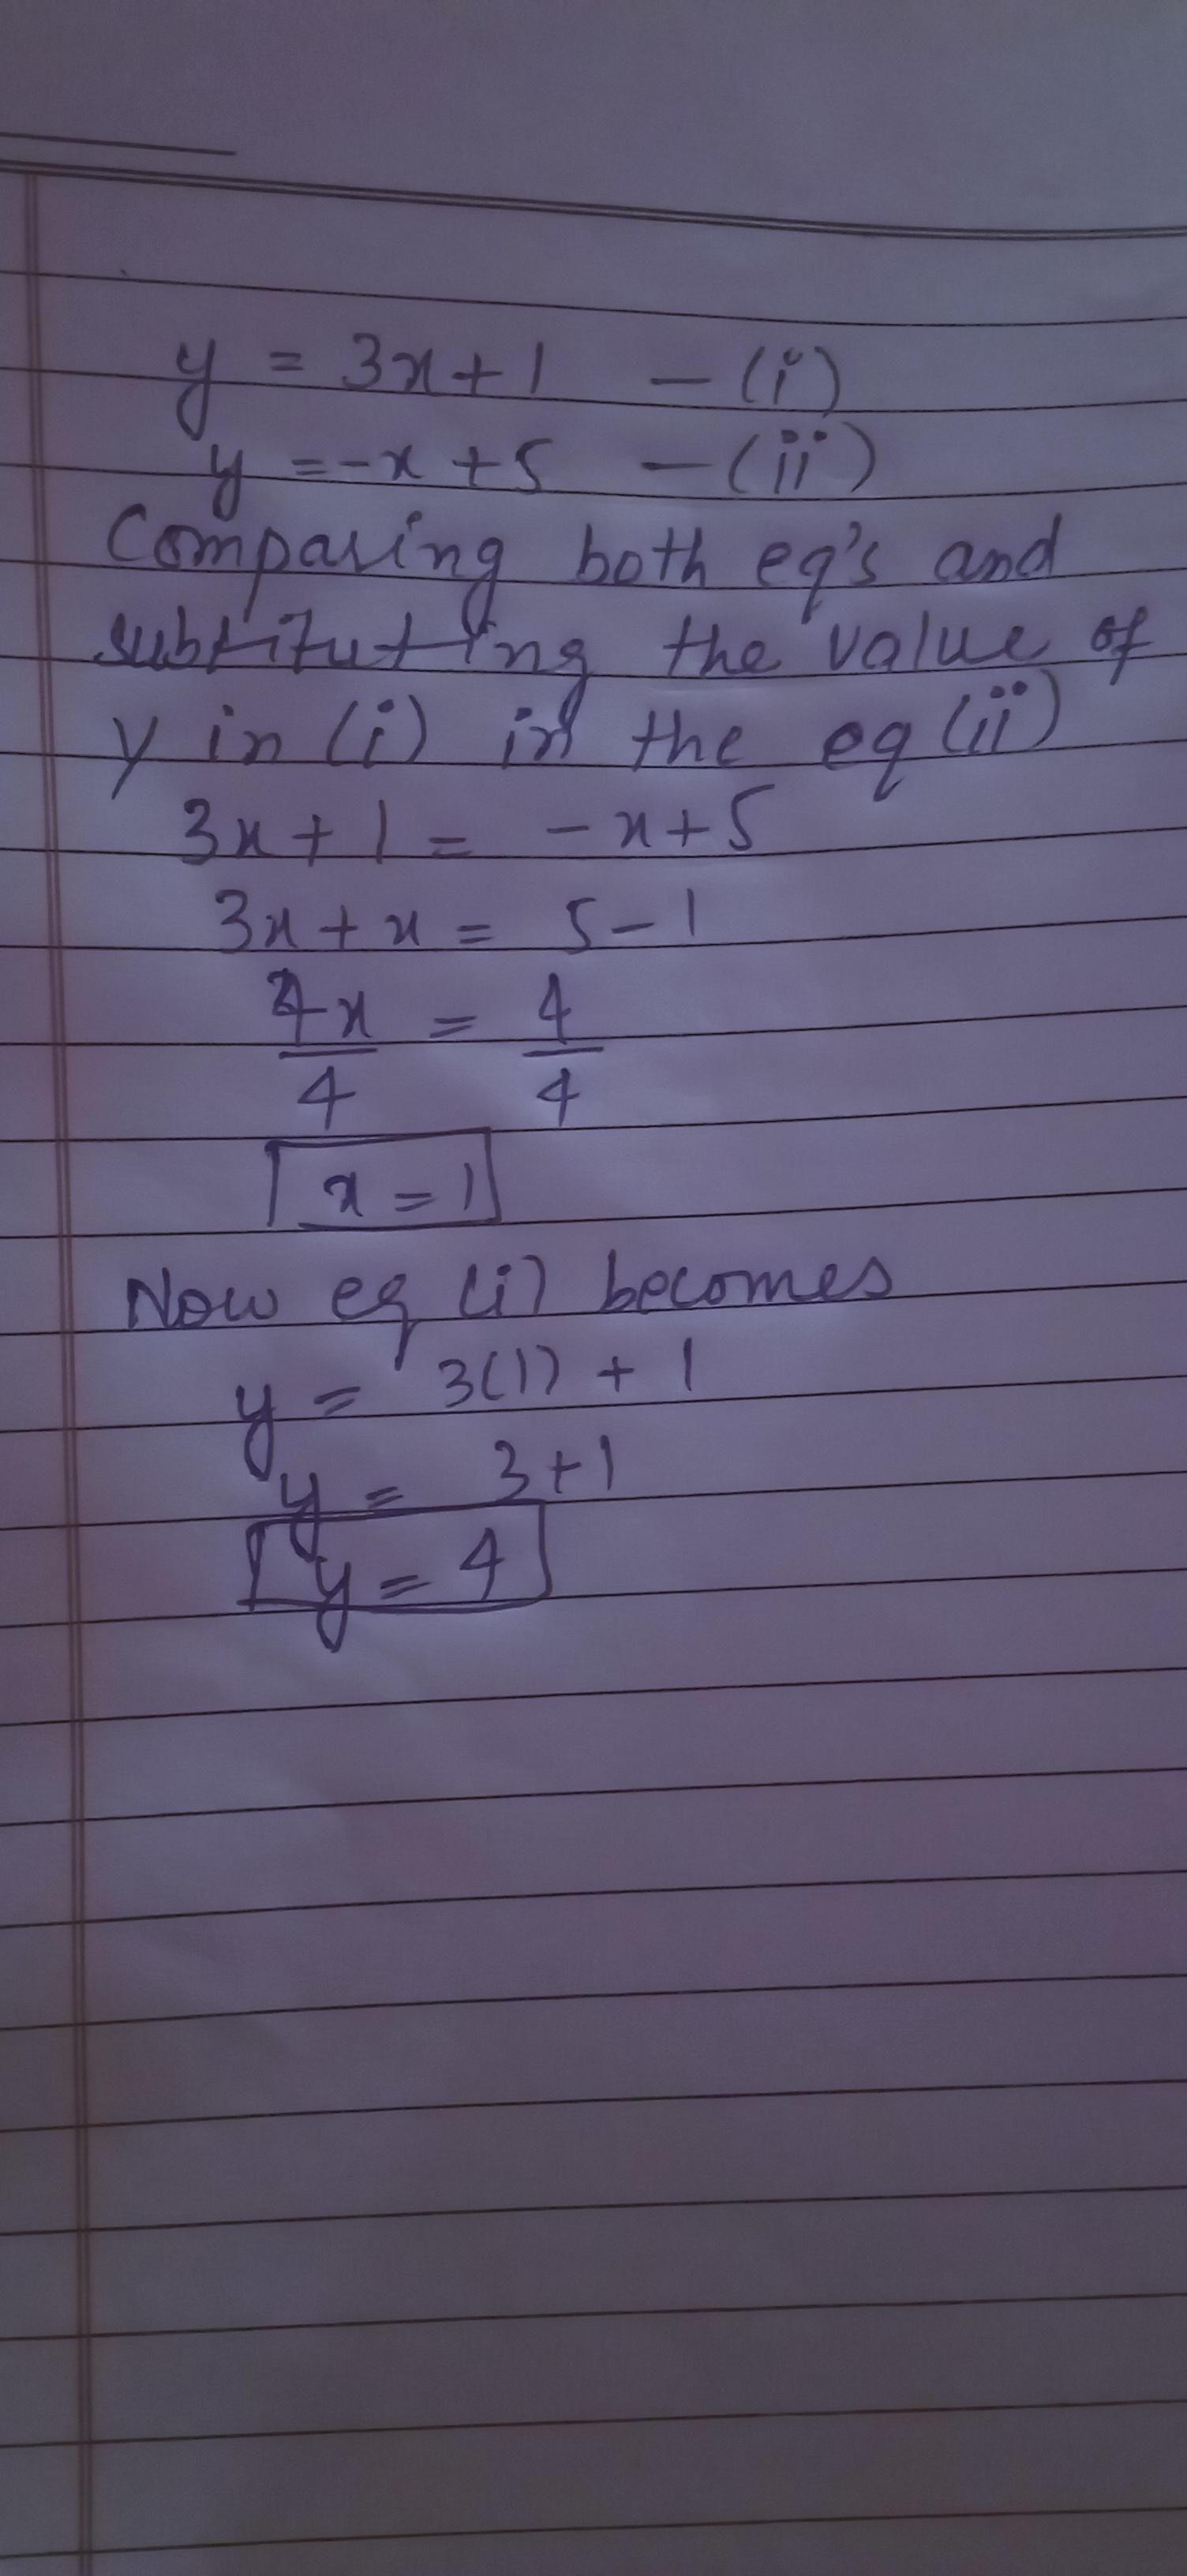 y = 3x + 1 - (i)
y = -x + 5 - (ii)
Comparing both eq's and
substituting the value of
y in (i) in the eq (ii)
3x + 1 = - x + 5
3x + x = 5 - 1
4x/4 = 4/4
x = 1
Now eq (i) becomes
y = 3(1) + 1
y = 3 + 1
y = 4